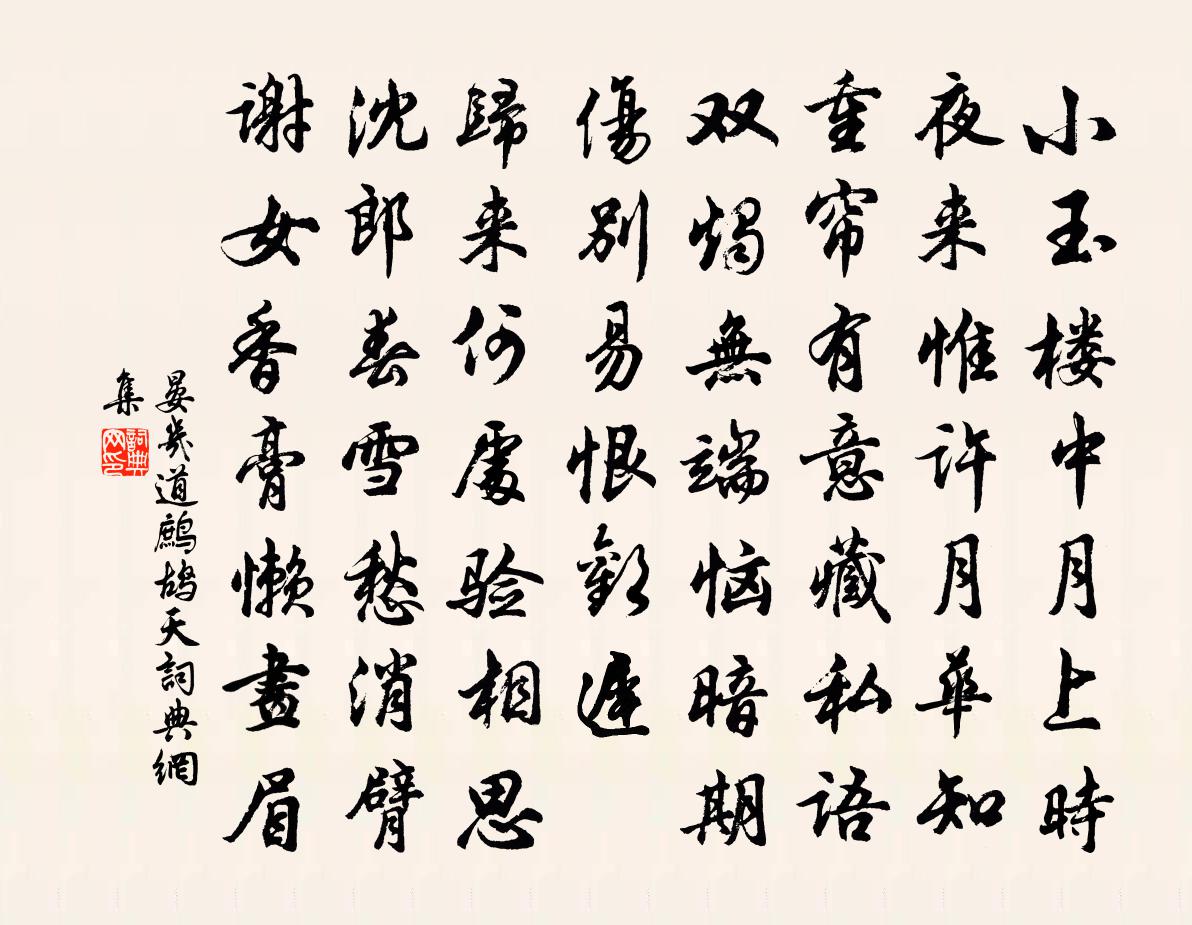 小玉楼中月上時
夜来惟许月华知
重帘有意藏私語
双燭無端恼暗期
傷別易恨歡遲
歸来何處验相思
沈郎春雪愁消臂
谢女香膏懒畫眉
晏幾道鷓鴣天詞典網
集
詞典網印